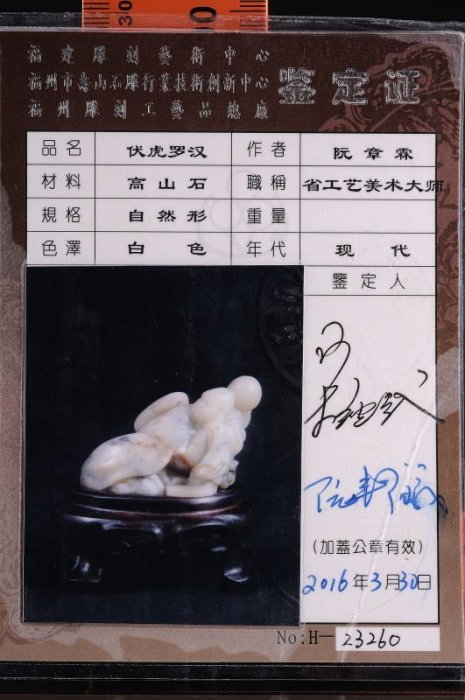 福建雕刻藝術中心
福州市壽山石雕行業技術創新中心
福州雕刻工藝品總廠
鉴定证
品名 伏虎罗汉 作者 阮章霖
材料 高山石 職稱 省工艺美术大师
規格 自然形 重量
色澤 白色 年代 现代
鑒定人
(加蓋公章有效)
2016年3月30日
No:H-23260